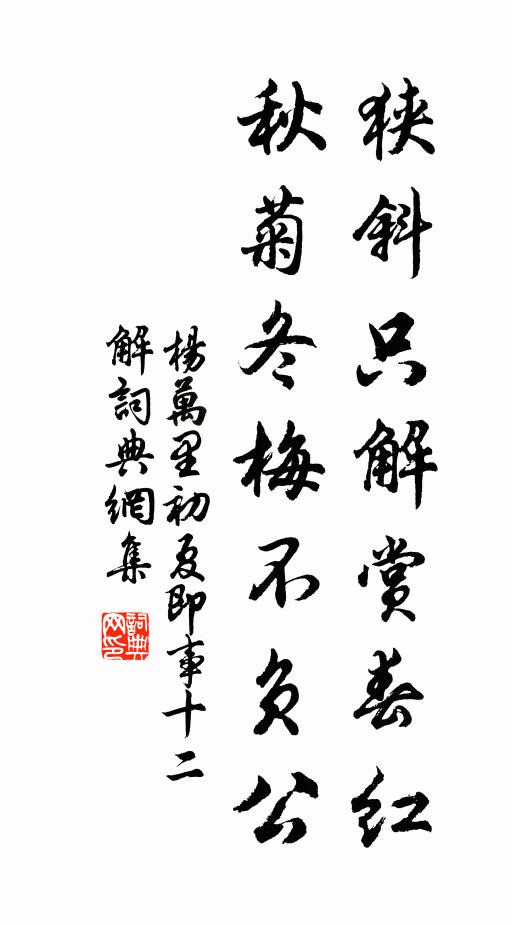 狹斜只解賞春紅
秋菊冬梅不負公
楊萬里初夏即事十二
解詞典網集
詞典
网印